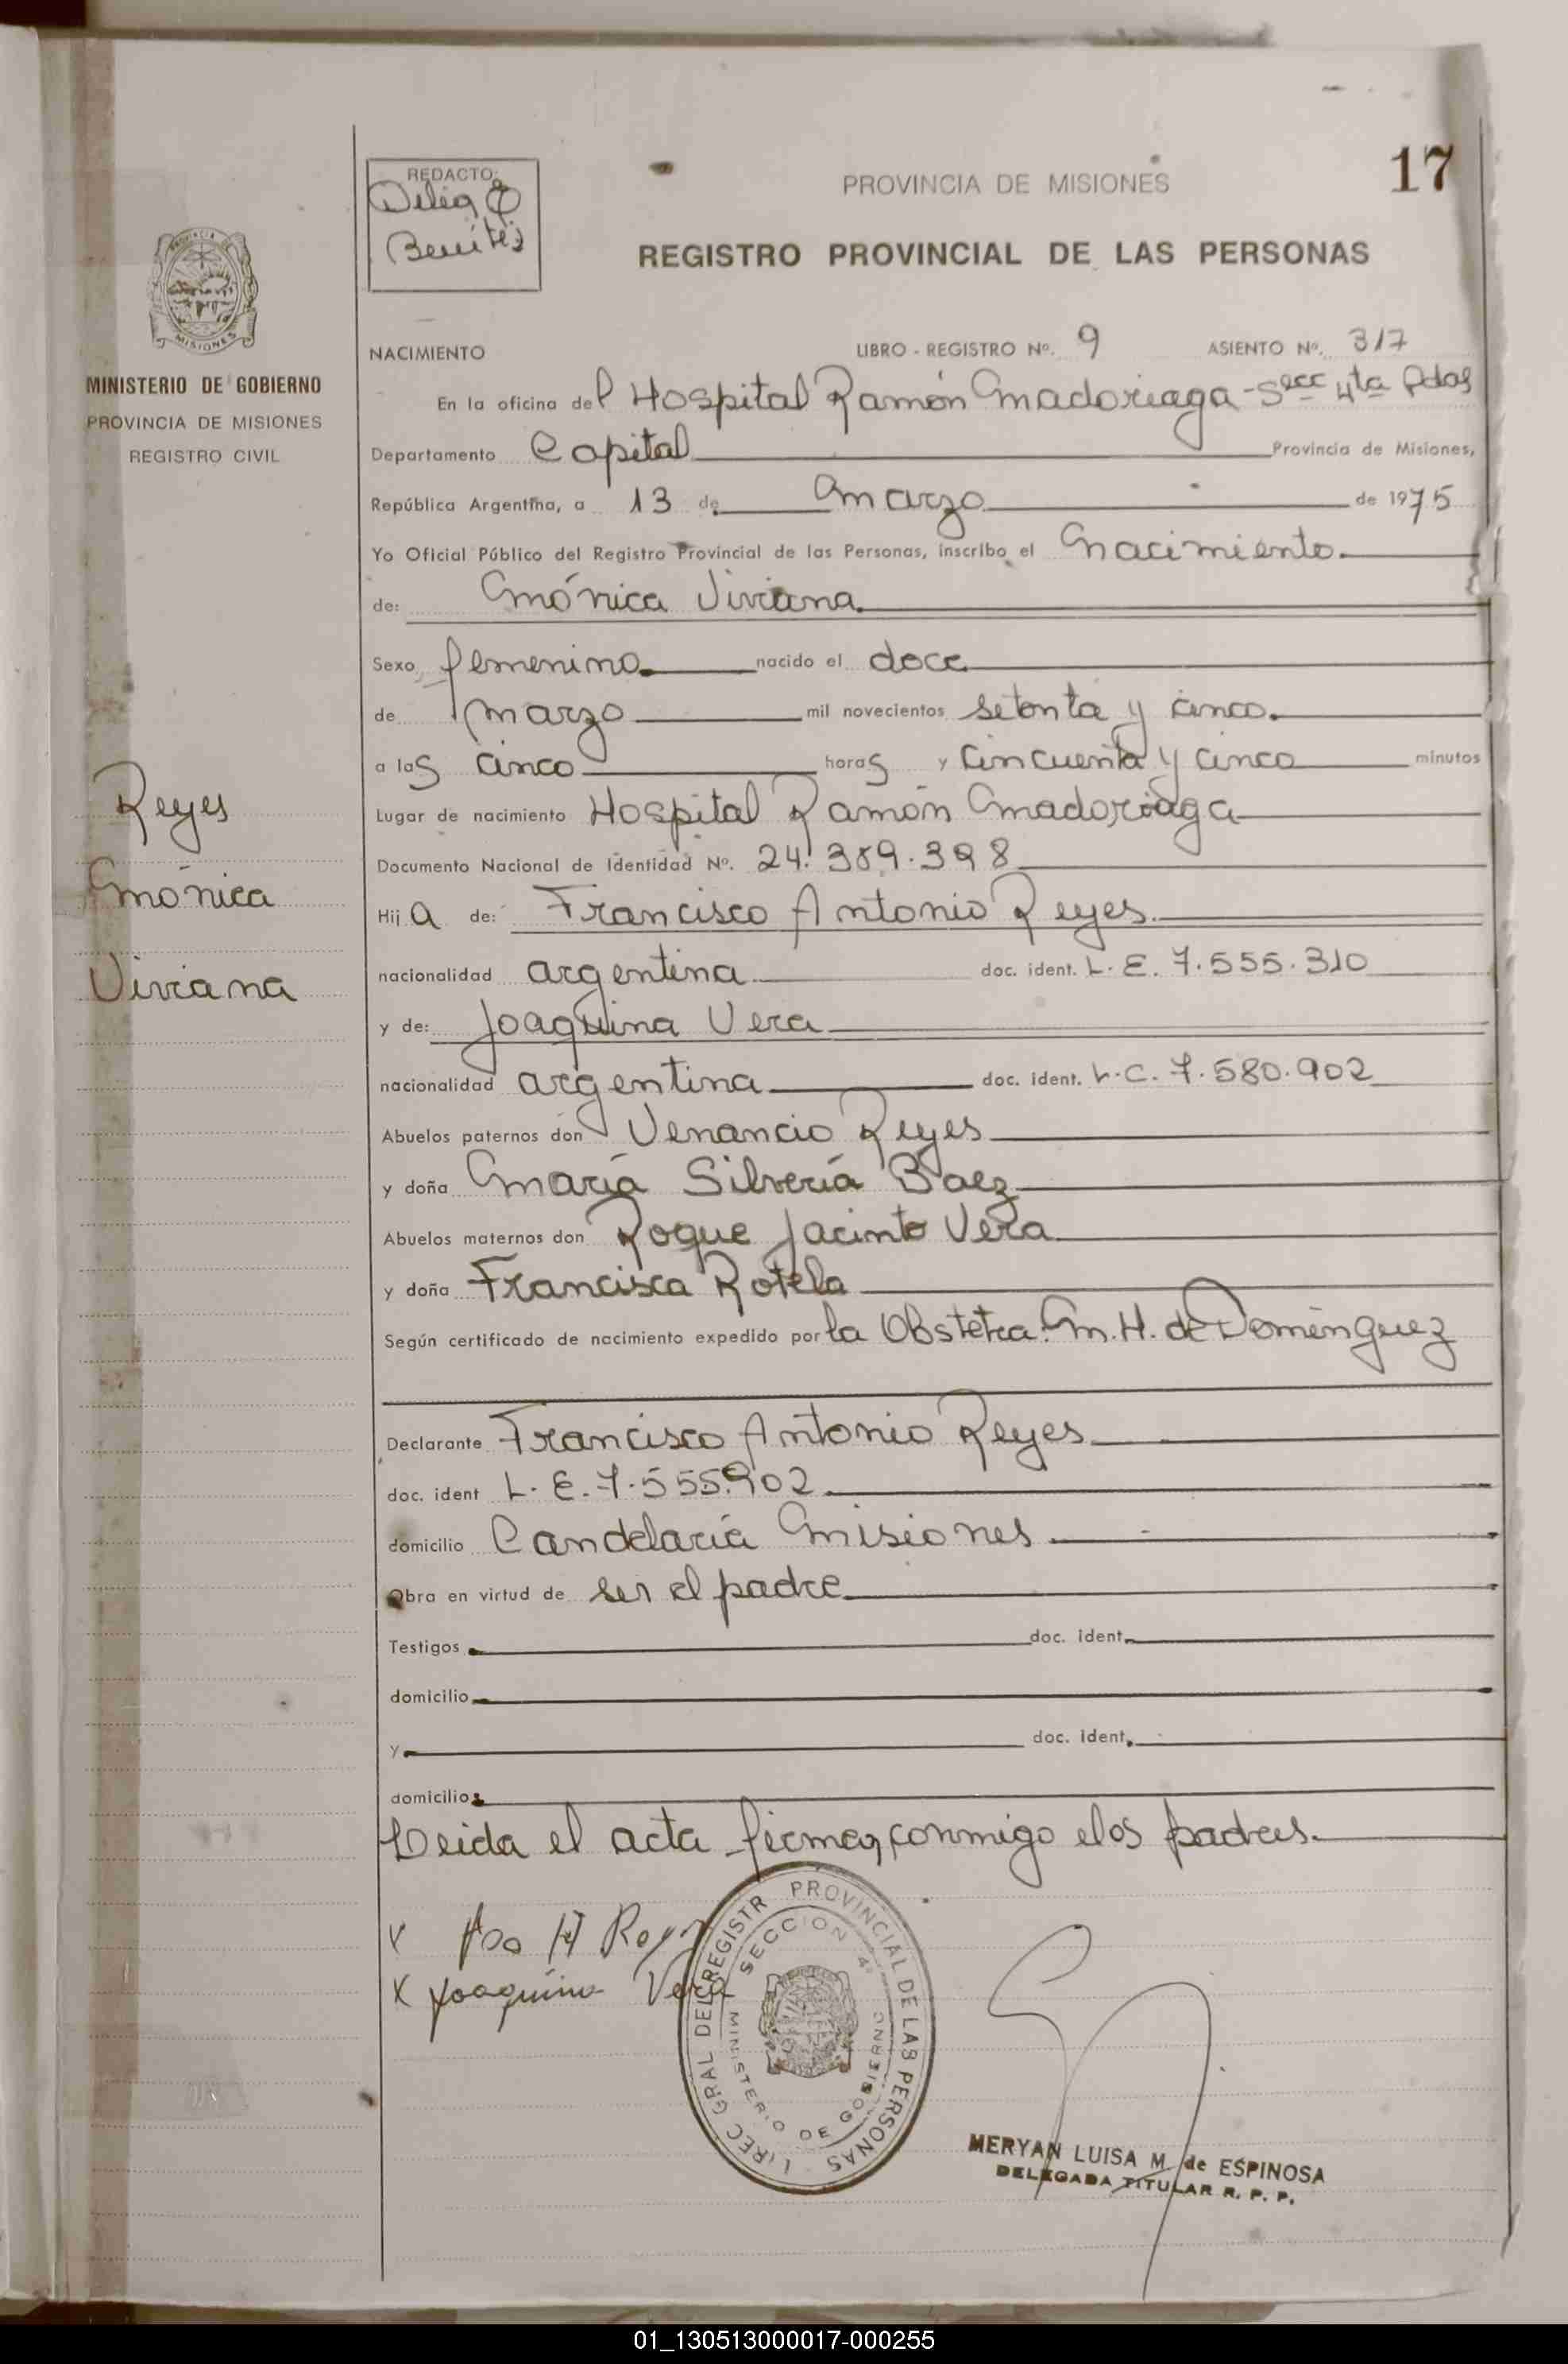 17
REDACTO:
Delia
Benítez
PROVINCIA DE MISIONES
REGISTRO PROVINCIAL DE LAS PERSONAS
MISIONES
MINISTERIO DE GOBIERNO
PROVINCIA DE MISIONES
REGISTRO CIVIL
NACIMIENTO LIBRO - REGISTRO Nº. 9 ASIENTO Nº. 317
En la oficina del Hospital Ramón Madoriaga - Secc 4ta Pdas
Departamento Capital Provincia de Misiones,
República Argentina, a 13 de Marzo de 1975
Yo Oficial Público del Registro Provincial de las Personas, inscribo el Nacimiento.
de: Mónica Viviana.
Sexo femenino. nacido el doce
de marzo mil novecientos setenta y cinco.
a las cinco horas y cincuenta y cinco minutos
Lugar de nacimiento Hospital Ramón Madoriaga
Documento Nacional de Identidad Nº. 24.389.398
Hija de: Francisco Antonio Reyes.
nacionalidad argentina doc. ident. L.E. 7.555.310
y de: Joaquina Vera
nacionalidad argentina doc. ident. L.C. 7.580.902
Abuelos paternos don Venancio Reyes
y doña María Silveria Baez
Abuelos maternos don Roque Jacinto Vera
y doña Francisca Rotela
Según certificado de nacimiento expedido por la Obstetra. M.H. de Domínguez
Declarante Francisco Antonio Reyes
doc. ident L.E. 7.555.902
domicilio Candelaria Misiones
Obra en virtud de ser el padre
Testigos doc. ident.
domicilio
y doc. ident.
domicilio
Leida el acta firman conmigo elos padres.
Reyes
Mónica
Viviana
X Fco A Reyes
X Joaquina Vera
DIREC GRAL DEL REGISTR PROVINCIAL DE LAS PERSONAS
SECCION 4ª
MINISTERIO DE GOBIERNO
MERYAN LUISA M. de ESPINOSA
DELEGADA TITULAR R. P. P.
01_130513000017-000255